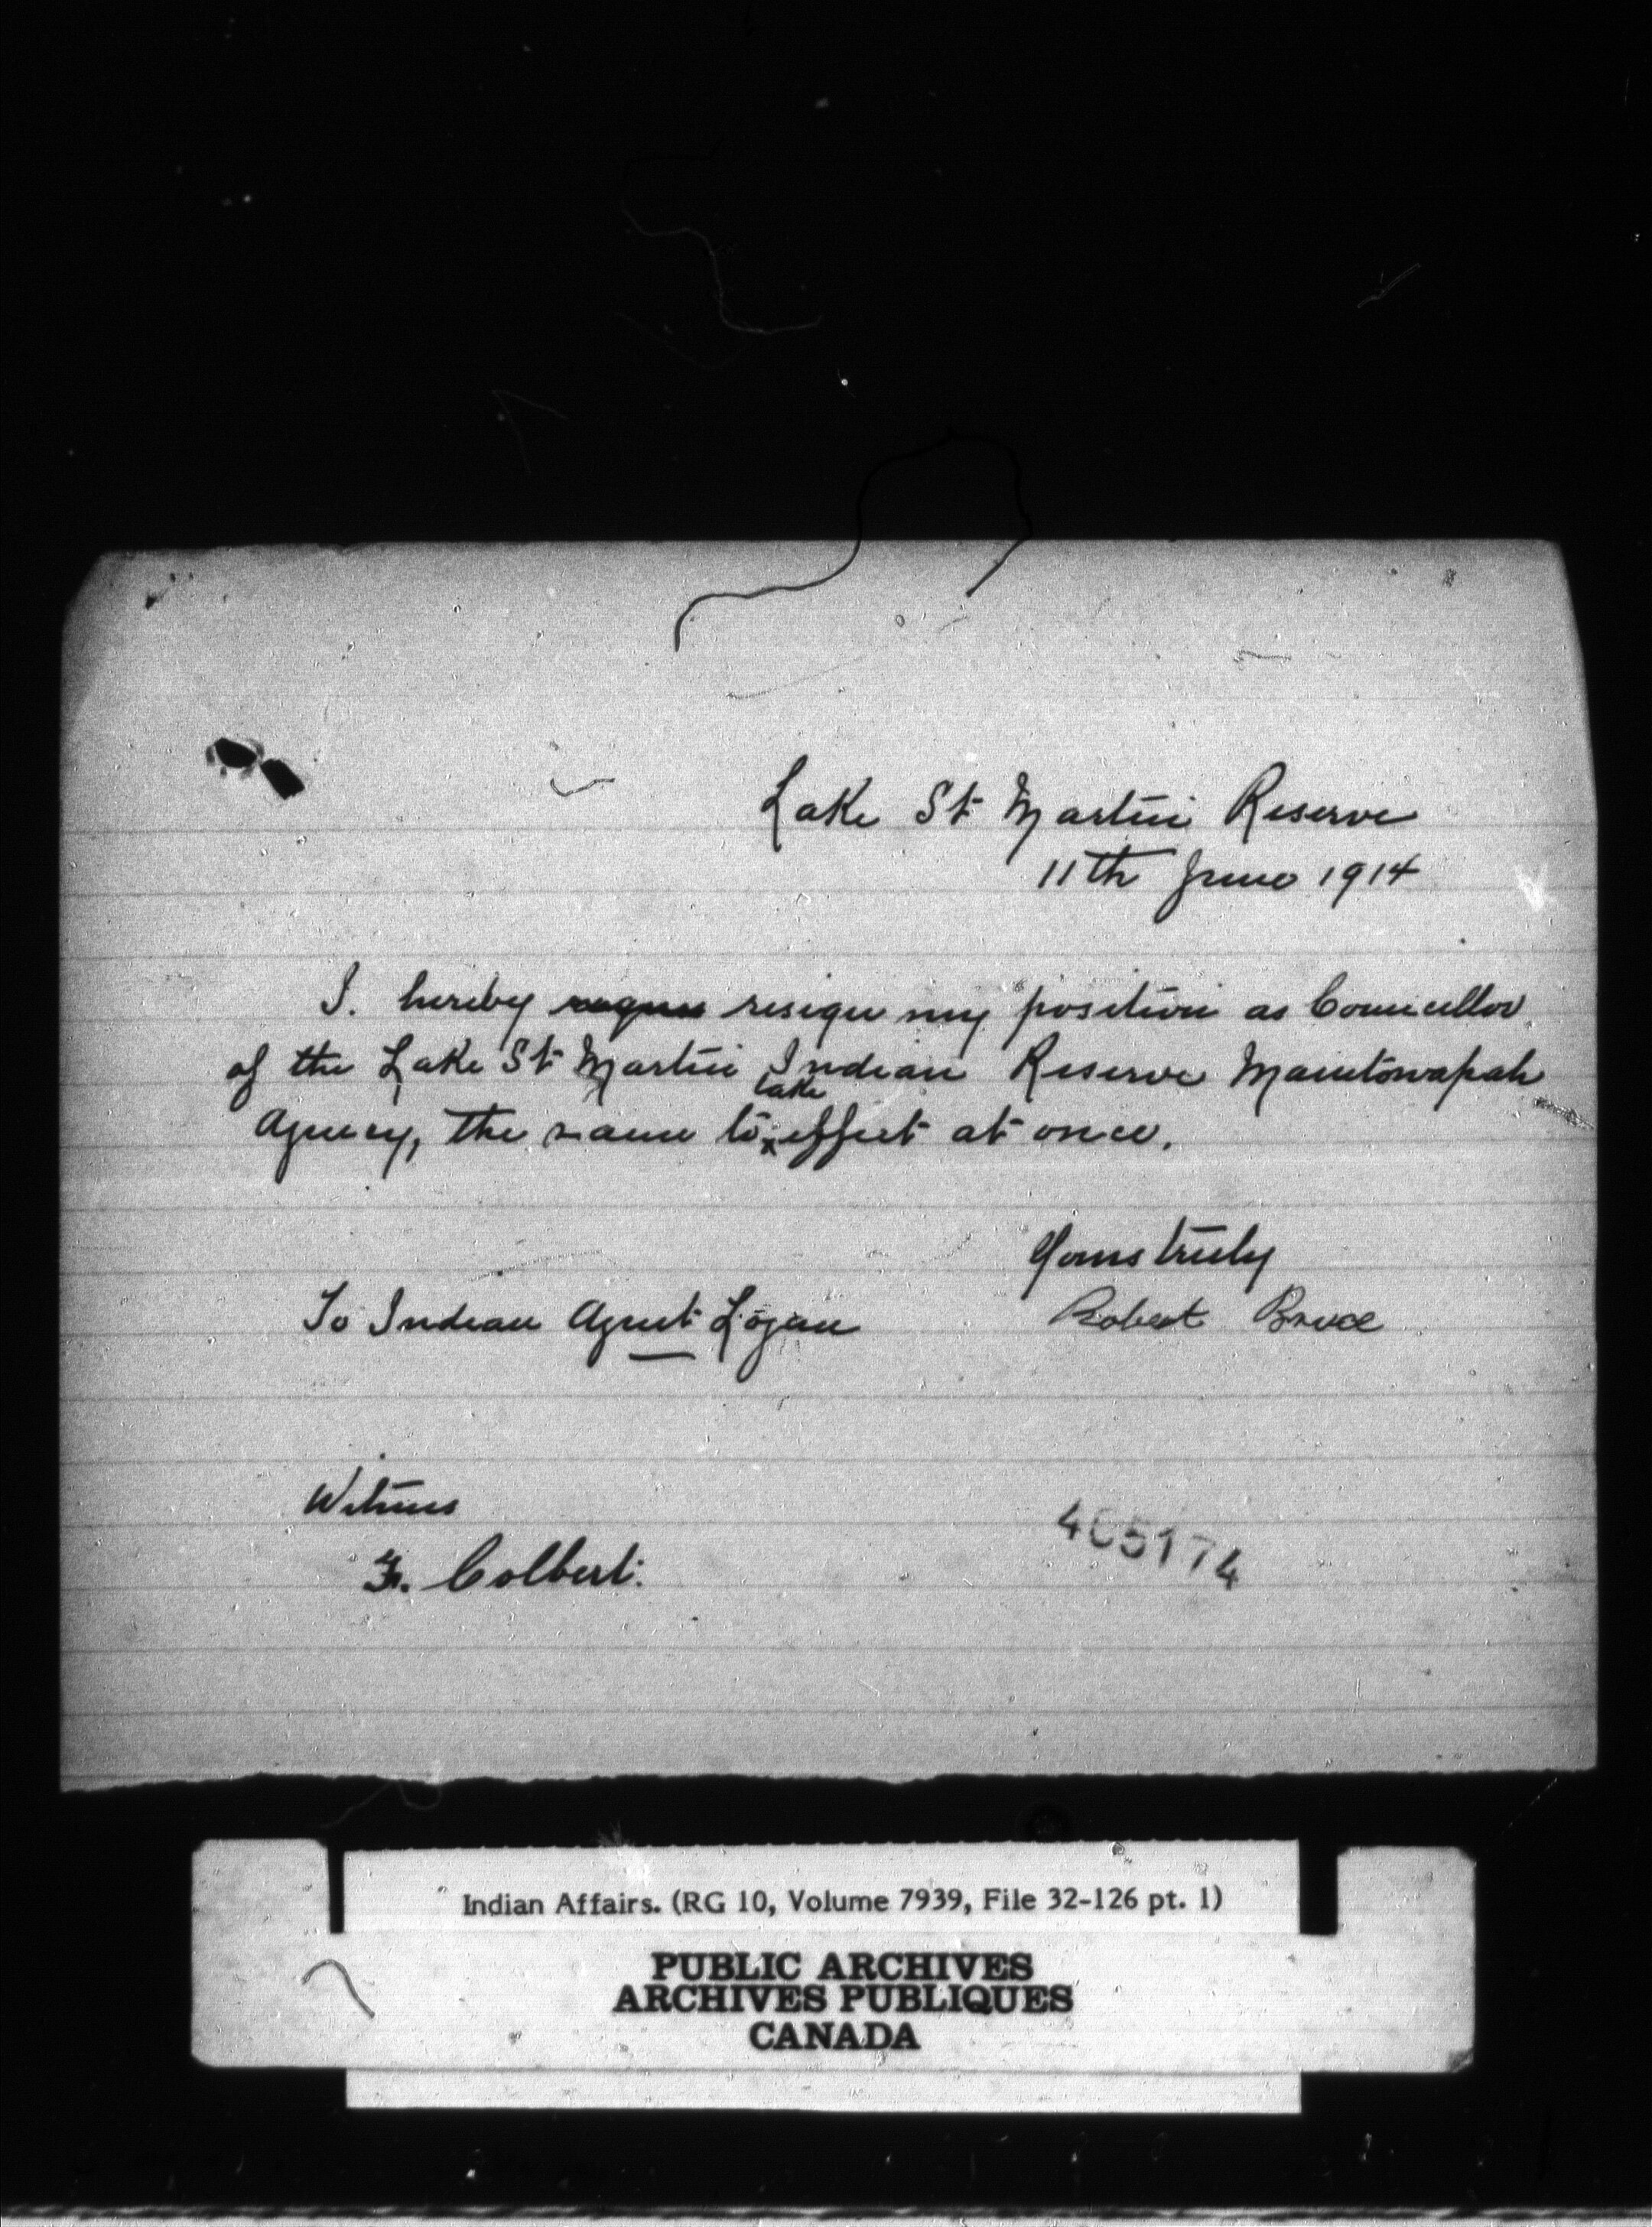 Lake St Martin Reserve
11th June 1914
I. hereby resign my position as Councillor
of the Lake St Martin Indian Reserve Manitowapah
take
Agency, the same to effect at once.
Yours truly
To Indian Agent Logan Robert Bruce
Witness
F. Colbert.
405174
Indian Affairs. (RG 10, Volume 7939, File 32-126 pt. 1)
PUBLIC ARCHIVES
ARCHIVES PUBLIQUES
CANADA